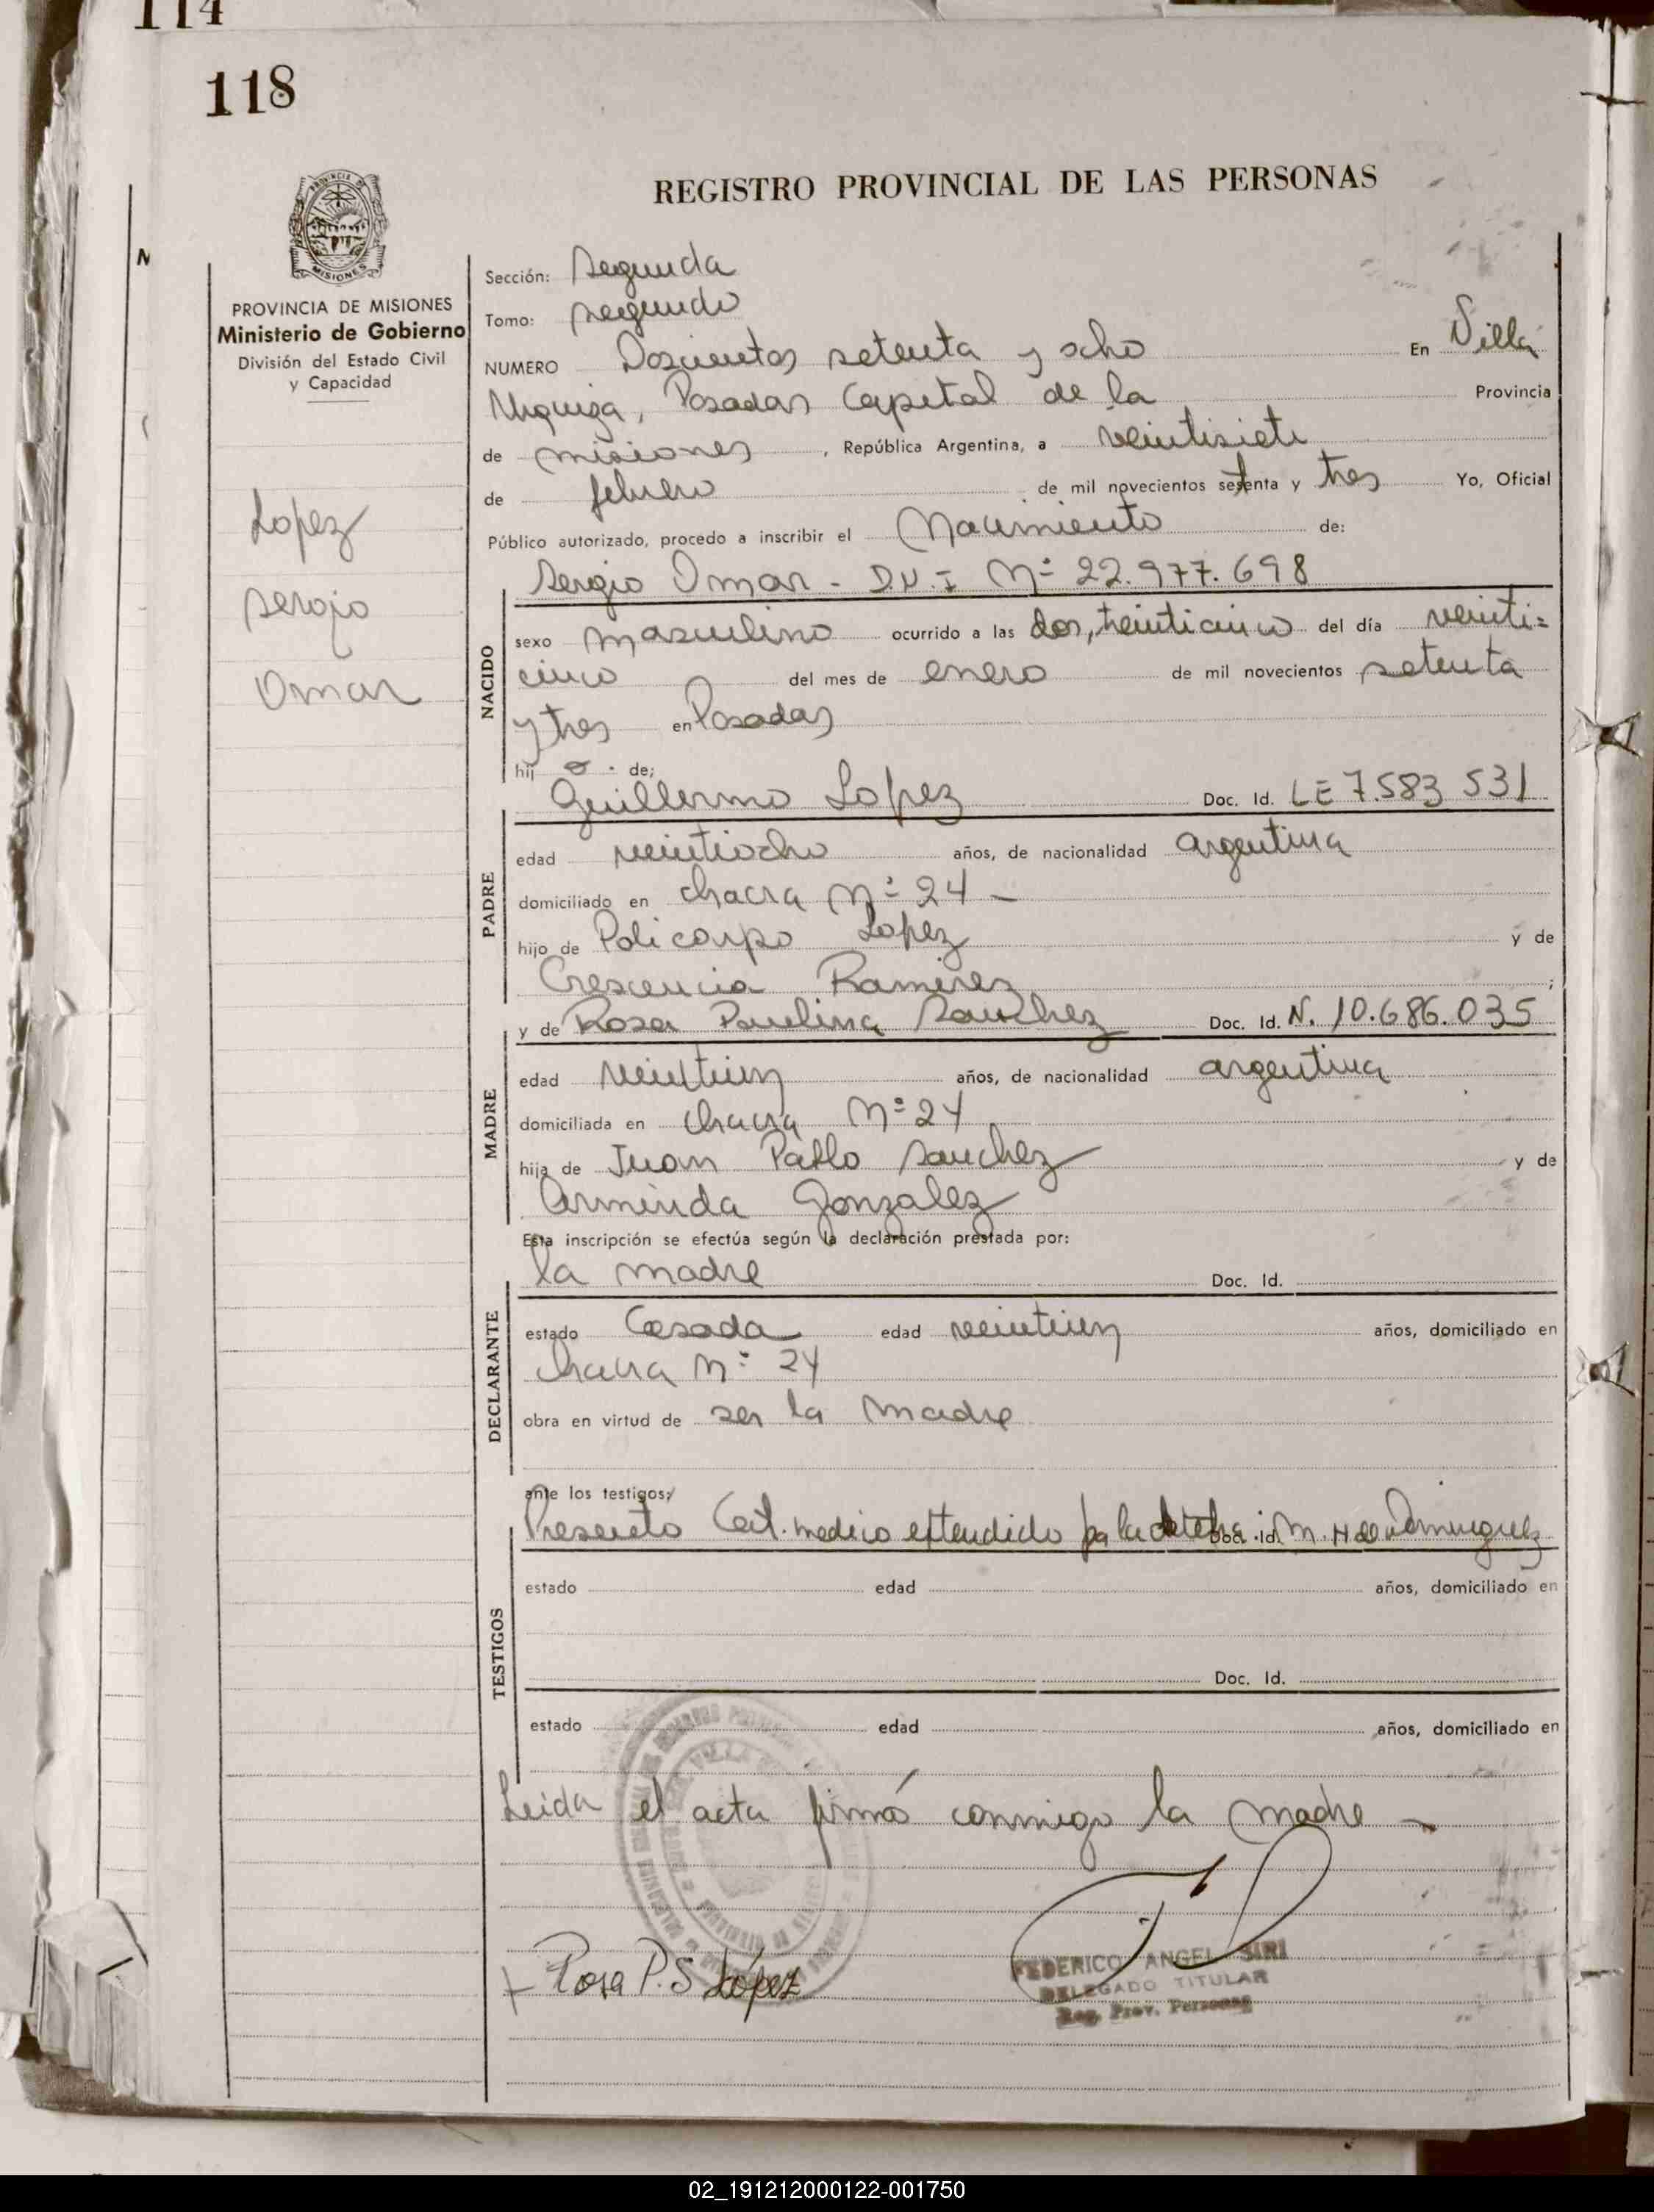 114
118
PROVINCIA DE MISIONES
Ministerio de Gobierno
División del Estado Civil
y Capacidad
Lopez
Sergio
Omar
REGISTRO PROVINCIAL DE LAS PERSONAS
Sección: Segunda
Tomo: segundo
NUMERO Doscientos setenta y ocho En Villa
Urquiza, Posadas Capital de la Provincia
de misiones, República Argentina, a veintisiete
de febrero de mil novecientos setenta y tres Yo, Oficial
Público autorizado, procedo a inscribir el Nacimiento de:
Sergio Omar - D.N.I Nº 22.977.698
NACIDO
sexo masculino ocurrido a las dos, treinticinco del día veinti=
cinco del mes de enero de mil novecientos setenta
y tres en Posadas
hijo de;
Guillermo Lopez Doc. Id. LE 7.583 531
PADRE
edad veintiocho años, de nacionalidad argentina
domiciliado en chacra Nº 24 -
hijo de Policarpo Lopez y de
Crescencia Ramirez;
y de Rosa Paulina Sanchez Doc. Id. N. 10.686.035
MADRE
edad veintiun años, de nacionalidad argentina
domiciliada en chacra Nº 24
hija de Juan Pablo Sanchez y de
Arminda Gonzalez
Esta inscripción se efectúa según la declaración prestada por:
la madre Doc. Id.
DECLARANTE
estado Casada edad veintiun años, domiciliado en
chacra Nº 24
obra en virtud de ser la madre
ante los testigos:
Presento Cert. medico extendido por la Doc. Id. M. H de Dominguez
TESTIGOS
estado edad años, domiciliado en
Doc. Id.
estado edad años, domiciliado en
Leida el acta firmó conmigo la madre -
Rosa P. S López
FEDERICO ANGEL SIRI
DELEGADO TITULAR
Reg. Prov. Personas
02_191212000122-001750